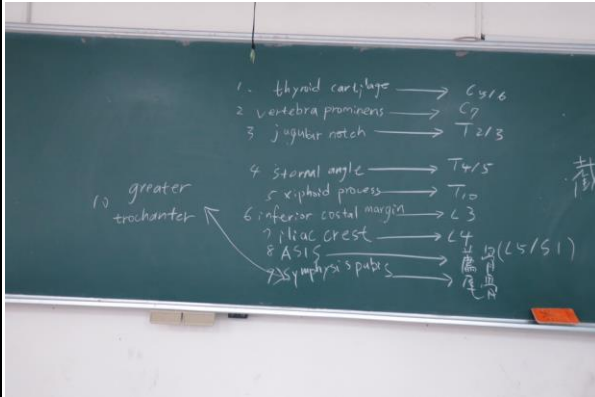 1. thyroid cartilage → C5/6
2 vertebra prominens → C7
3 jugular notch → T2/3
4 sternal angle → T4/5
5 xiphoid process → T10
6 inferior costal margin → L3
7 iliac crest → L4
8 ASIS → 薦骨(L5/S1)
9 symphysis pubis → 尾骨
10 greater
trochanter